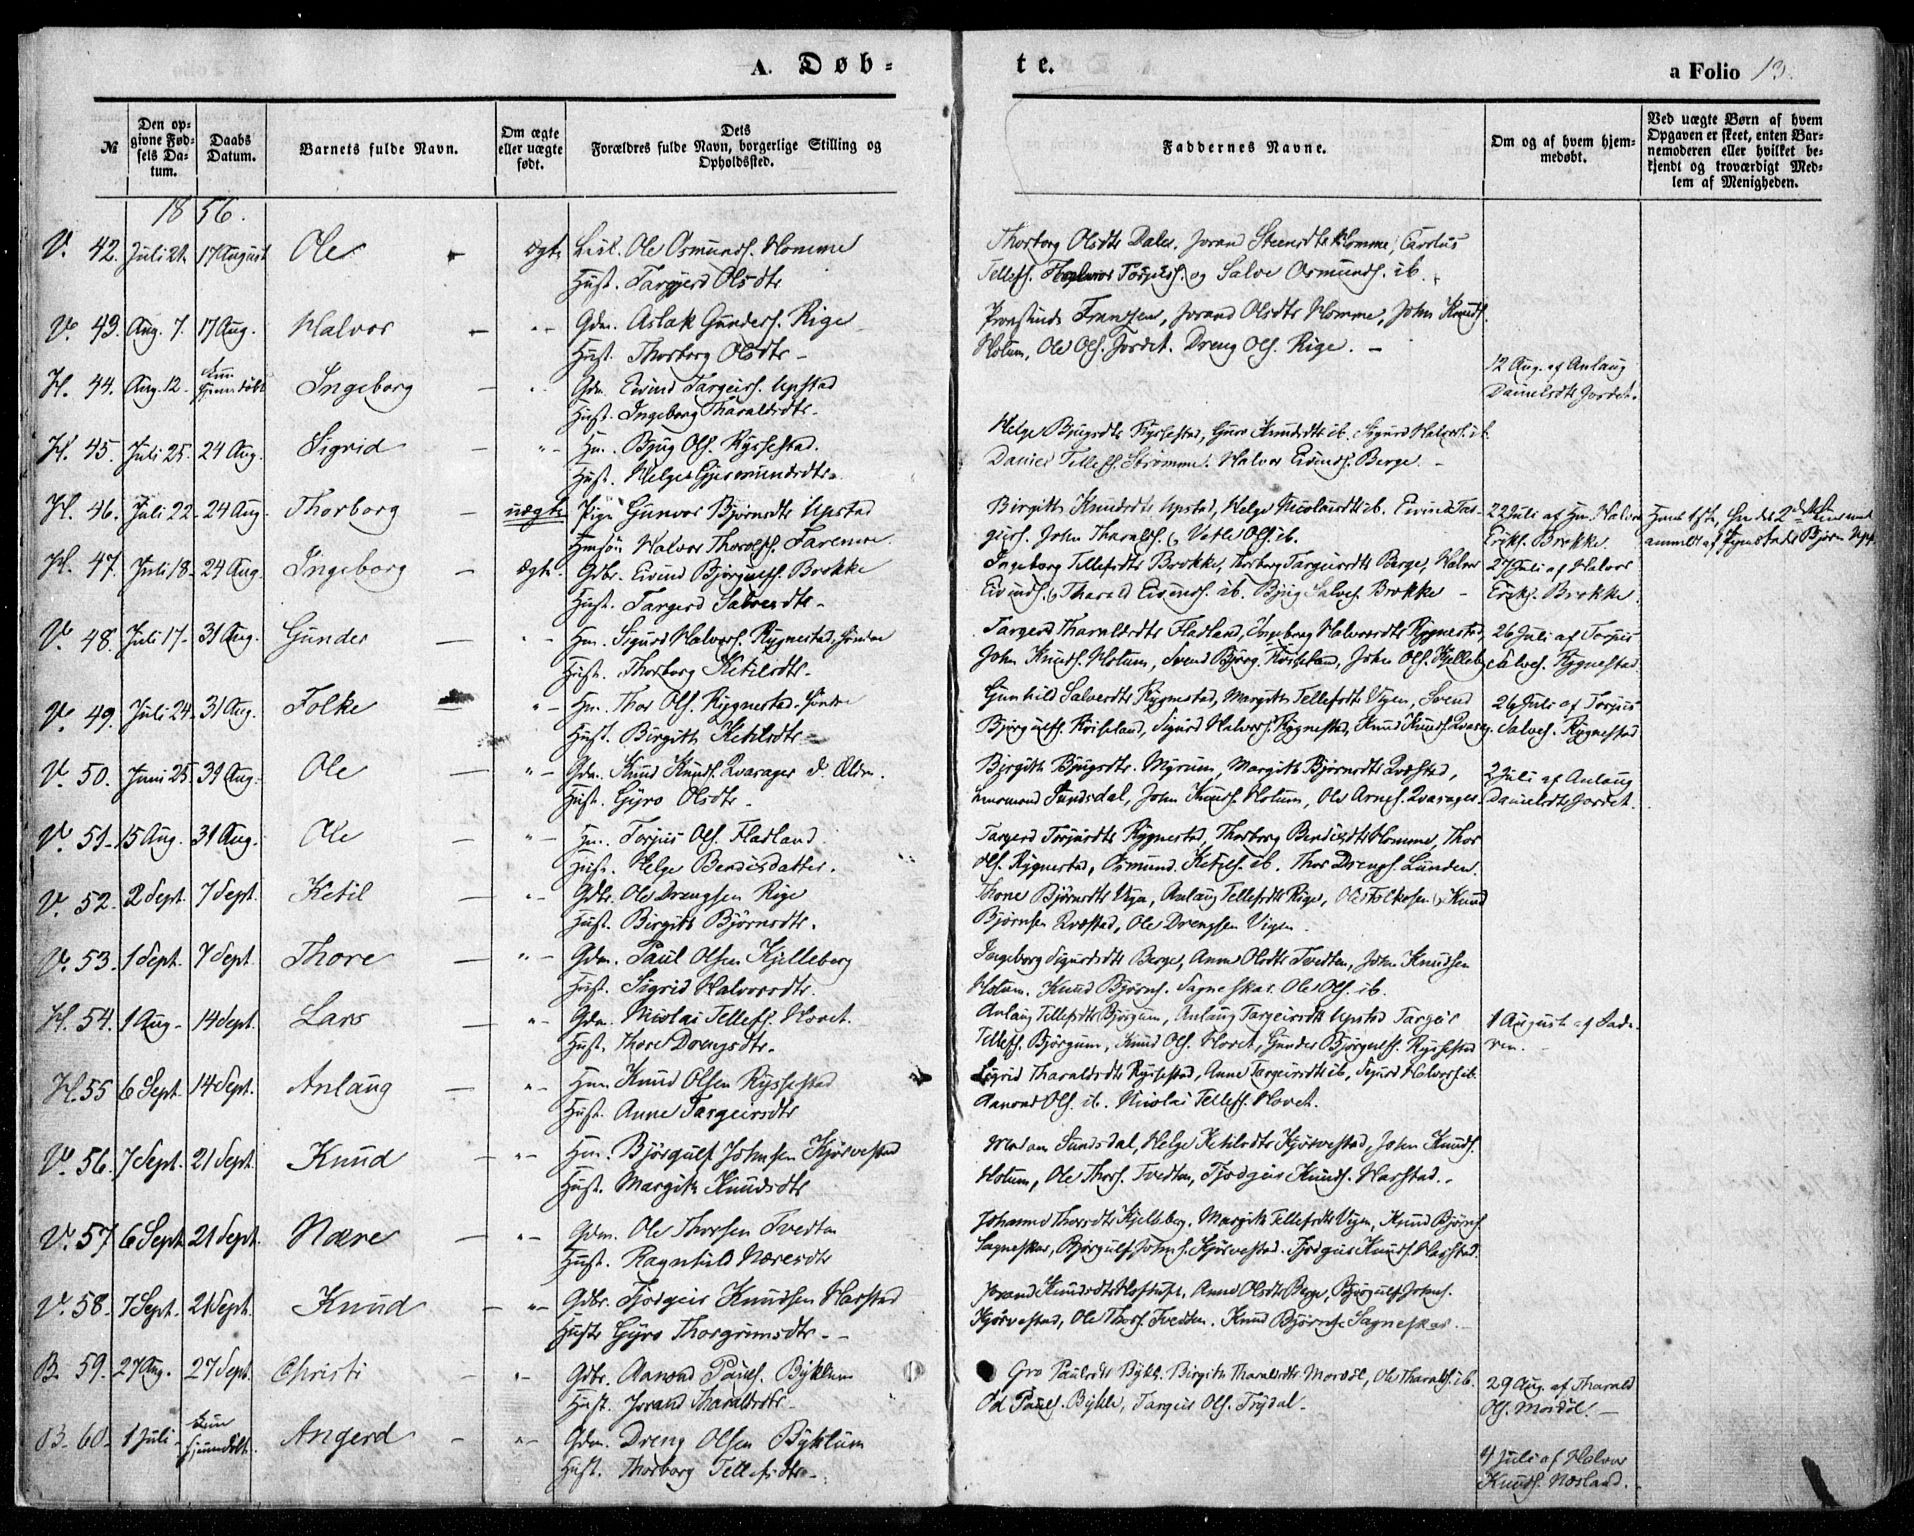 A. Døb-
te.
a Folio 13.
№
Den op-
givne Fød-
sels Da-
tum.
Daabs
Datum.
Barnets fulde Navn.
Om ægte
eller uægte
født.
Dets
Forældres fulde Navn, borgerlige Stilling og
Opholdssted.
Faddernes Navne.
Om og af hvem hjem-
medøbt.
Ved uægte Børn af hvem
Opgaven er skeet, enten Bar-
nemoderen eller hvilket be-
kjendt og troværdigt Med-
lem af Menigheden.
1856.
V. 42. Juli 21. 17 August Ole - ægte Ole Osmunds. Homme
Hust. Targjerd Olsdtr
Thorborg Olsdtr Dale. Jorand Steensdtr Homme,
Tellefs. og Salve Osmunds. ib.
V. 43. Aug. 7. 17 Aug. Halvor - " - Gdm. Aslak Gunders. Rige
Hust. Thorborg Olsdtr -
Franzen, Jorand Olsdtr Homme, John Knuds.
Holum, Ole Ols. Jordet. Dreng Ols. Rige. -
H. 44. Aug. 12. kun hjemdøbt Ingeborg - " Gdm. Eivind Targeirs. Upstad
Hust. Ingeborg Tharaldsdtr.
12 Aug. af Anlaug
Danielsdtr Jordet.
H. 45. Juli 25. 24 Aug. Sigrid - " - Hm. Bjug Ols. Ryssestad.
Hust. Helge Gjermundsdtr.
Helge Bjugsdtr Ryssestad, Guro Knudsdtr ib. Sigurd Halvors. ib.
Daniel Tellefs. Strømme. Halvor Eivinds. Berge. -
H. 46. Juli 22 - 24 Aug. Thorborg - uægte Pige Gunvor Bjørnsdtr Upstad
Halvor Thorolfs. Farenæ
Birgith Knudsdtr Upstad, Helge Nicolaisdtr ib. Eivind Tar-
geirs. John Tharalds. & Vetle Ols. ib.
22 Juli af Hm. Halvor
Eriks. Brokke.
H. 47. Juli 18 - 24 Aug. Ingeborg - ægte. Gdbr. Eivind Bjørgulfs. Brokke
Hust. Targerd Salvesdtr -
Ingeborg Tellefsdtr Brokke, Thorborg Targeirsdtr Berge, Halvor
Eivinds. & Tharald Eivinds. ib. Bjug Salves. Brokke -
27 Juli af Halvor
Eriks. Brokke.
V. 48. Juli 17 - 31 Aug. Gunder - " - Hm. Sigurd Halvors. Rygnestad, søndre
Hust. Thorborg Ketilsdtr -
Targerd Tharaldsdtr Fladland, Ingeborg Halvorsdtr Rygnestad,
John Knuds. Holum, Svend Bjørg. Roiseland, John Ols. Kjelleb.
26 Juli af Torjus
Salves. Rygnestad
V. 49. Juli 24 - 31 Aug. Folke - " - Hm. Thor Ols. Rygnestad. søndre
Hust. Birgith Ketilsdtr -
Gunhild Salvesdtr Rygnestad, Margith Tellefsdtr Vigen, Svend
Bjørgulfs. Roiseland, Sigurd Halvors. Rygnestad, Knud Knuds. Qvarag.
26 Juli af Torjus
Salves. Rygnestad
V. 50. Juni 25. 31 Aug. Ole - " - Gdm. Knud Knuds. Qvarager d. Ældre.
Hust. Gyro Olsdtr -
Birgith Bjugsdtr. Myrum, Margith Bjørnsdtr Qvæstad,
Sundsdal, John Knuds. Holum, Ole Arnes. Qvarager.
2 Juli af Anlaug
Danielsdtr Jordet.
V. 51. 15 Aug. 31 Aug. Ole - " - Hm. Torjus Ols. Fladland.
Hust. Helge Bendixdatter.
Targerd Torjusdtr Rygnestad, Thorborg Bendixdtr Homme, Thor
Ols. Rygnestad, Osmund Ketils. ib. Thor Drengs. Lunden.
V. 52. 2 Sept. 7 Sept. Ketil - " - Gdbr. Ole Drengsen Rige
Hust. Birgith Bjørnsdtr.
Thone Bjørnsdtr Vigen, Anlaug Tellefsdtr Rige, Ole Folkesen & Knud
Bjørnsen Qvæstad, Ole Drengsen Vigen.
V. 53. 1 Sept. 7 Sept. Thore - " - Gdm. Paul Olsen Kjelleberg
Hust. Sigrid Halvorsdtr.
Ingeborg Sigurdsdtr Berge, Anne Olsdtr Tvedten, John Knudsen
Holum. Knud Bjørns. Sagneskar. Ole Ols. ib.
H. 54. 1 Aug. 14 Sept. Lars - " - Gdm. Nicolai Tellefs. Hovet.
Hust. Thore Drengsdtr.
Anlaug Tellefsdtr Bjørgum, Anlaug Targeirsdtr Upstad Targeir
Tellefs. Bjørgum, Knud Ols. Hovet, Gunder Bjørgulfs. Ryssestad
1 August af Fade-
ren.
H. 55 6 Sept. 14 Sept. Anlaug - " - Hm. Knud Olsen Ryssestad
Hust. Anne Targeirsdtr
Sigrid Tharaldsdtr Ryssestad, Anne Targeirsdtr ib, Sigurd Halvors. ib.
Aanond Ols. ib. Nicolai Tellefs. Hovet.
V. 56. 7 Sept. 21 Sept. Knud - " - Hm. Bjørgulf Johnsen Kjørvestad
Hust. Margith Knudsdtr
Madam Sundsdal, Helge Ketilsdtr Kjørvestad, John Knuds.
Holum, Ole Thors. Tvedten, Tjodgeir Knuds. Harstad.
V. 57 6 Sept. 21 Sept. Nære - " - Gdm. Ole Thorsen Tvedten
Hust. Ragnhild Næresdtr
Johanne Thorsdtr Kjelleberg. Margith Tellefsdtr Vigen, Knud Bjørns.
Sagneskar, Bjørgulf Johns. Kjørvestad. Tjodgeir Knuds. Harstad.
V. 58. 7 Sept. 21 Sept. Knud - " - Gdbr. Tjodgeir Knudsen Harstad
Hust. Gyro Thorgrimsdtr. -
Jorand Knudsdtr, Anne Olsdtr Berge, Bjørgulf Johns.
Kjørvestad, Ole Thors. Tvedten. Knud Bjørns. Sagneskar.
B. 59. 27 Aug. 27 Sept. Christi - " - Gdbr. Aanond Pauls. Byklum
Hust. Jorand Tharaldsdtr.
Gro Paulsdtr Bykle. Birgith Tharaldsdtr Mosdøl, Ole Tharalds. ib.
Od Pauls. Bykle, Targeir Ols. Trydal.
29 Aug. af Tharald
Ols. Mosdøl. -
B. 60. 1 Juli - kun hjemdøbt. Angerd - " - Gdm. Dreng Olsen Byklum
Hust. Thorborg Tellefsdtr.
4 Juli af Halvor
Knuds. Næsland.